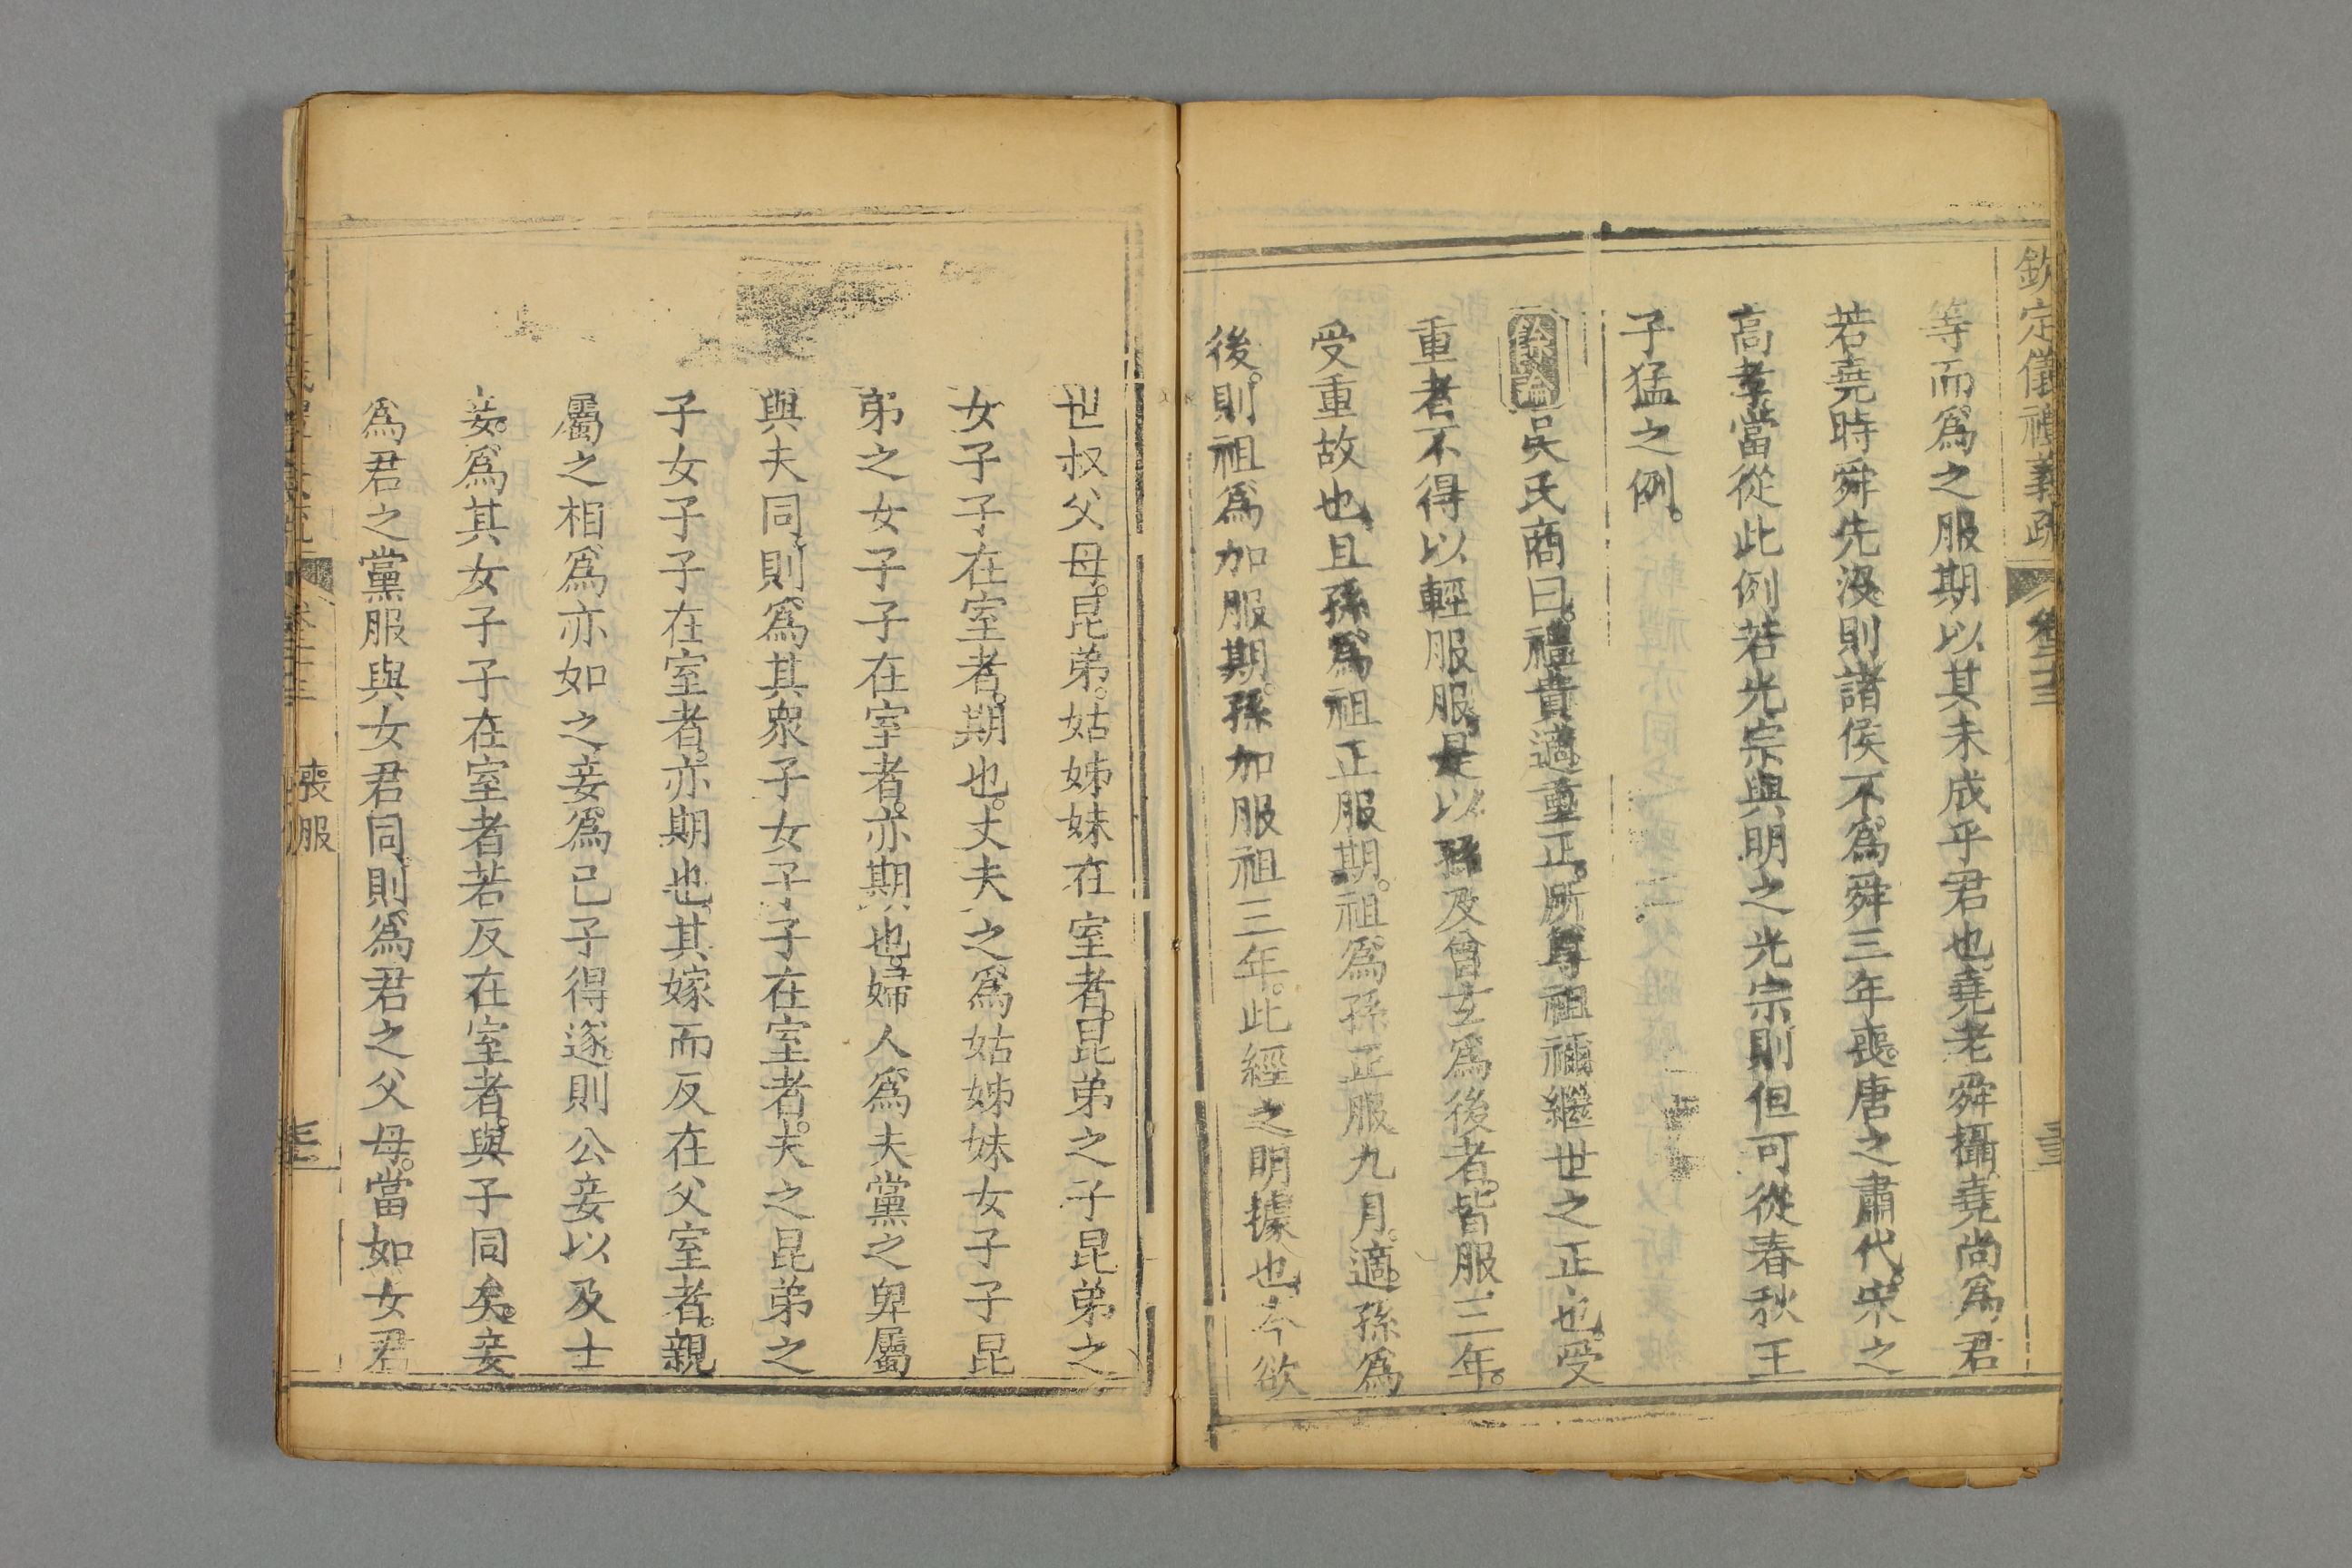 欽定儀禮義疏 卷二十三
等而爲之服期以其未成乎君也堯老舜攝堯尚爲君
若堯時舜先沒則諸侯不爲舜三年喪唐之肅代宋之
高孝當從此例若光宗與明之光宗則但可從春秋王
子猛之例。
餘論吳氏商曰。禮貴適重正。所尊祖禰繼世之正也。受
重者不得以輕服服是以孫及曾玄爲後者。皆服三年。
受重故也且孫爲祖正服期。祖爲孫正服九月。適孫爲
後。則祖爲加服期。孫加服祖三年。此經之明據也今欲
世叔父母。昆弟。姑姊妹在室者。昆弟之子昆弟之
女子子在室者。期也。丈夫之爲姑姊妹女子子昆
弟之女子子在室者。亦期也。婦人爲夫黨之卑屬
與夫同。則爲其衆子女子子在室者。夫之昆弟之
子女子子在室者。亦期也其嫁而反在父室者。親
屬之相爲亦如之妾。爲己子得遂則公妾以及士
妾。爲其女子子在室者若反在室者。與子同矣。妾
爲君之黨服與女君同。則爲君之父母。當如女君
喪服